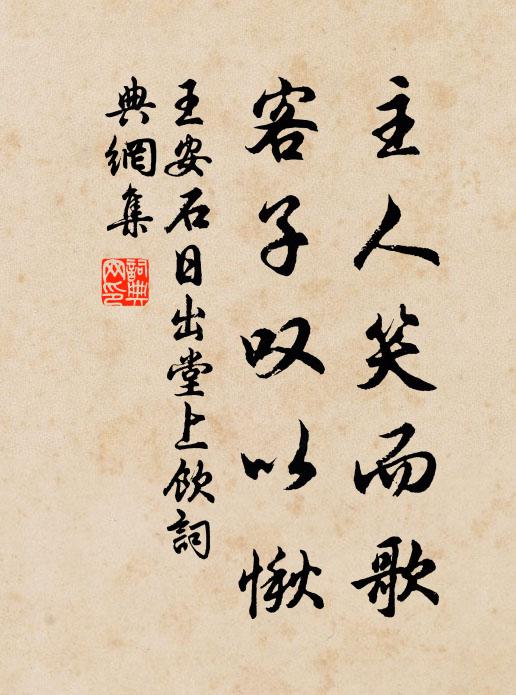 主人笑而歌
客子叹以愀
王安石日出堂上飲詞
典網集
詞典
网印